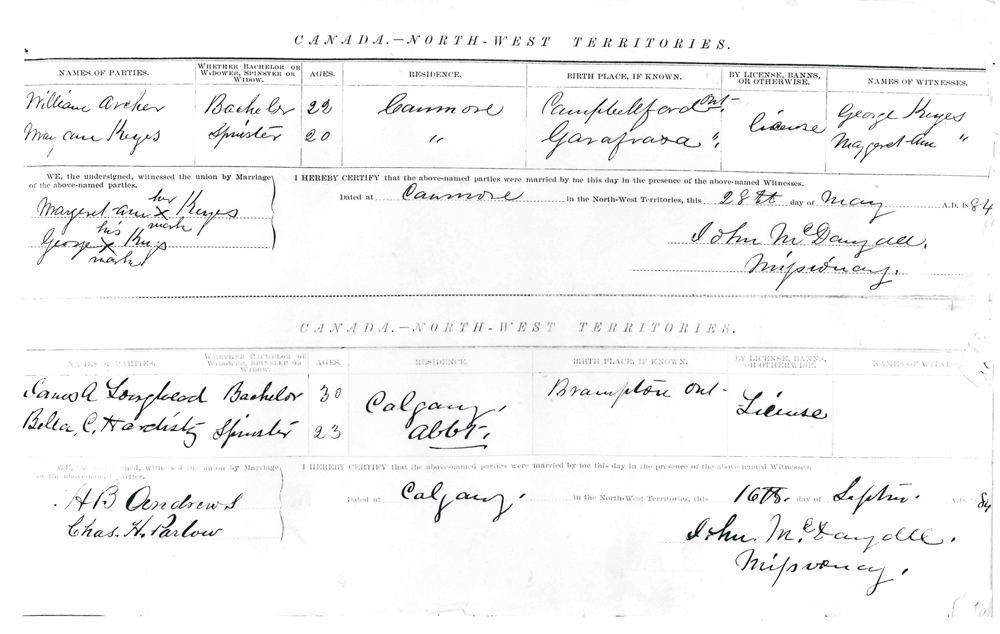 CANADA.—NORTH-WEST TERRITORIES.
NAMES OF PARTIES. WHETHER BACHELOR OR WIDOWER, SPINSTER OR WIDOW. AGES. RESIDENCE. BIRTH PLACE, IF KNOWN. BY LICENSE, BANNS, OR OTHERWISE. NAMES OF WITNESSES.
William Archer Bachelor 22 Canmore Campbellford Ont. license George Keyes
May ann Keyes Spinster 20 " Garafraxa " Maggeret Ann "
WE, the undersigned, witnessed the union by Marriage of the above-named parties.
I HEREBY CERTIFY that the above-named parties were married by me this day in the presence of the above-named Witnesses.
Margeret ann her X mark Keyes
George his X mark Keys
Dated at Canmore in the North-West Territories, this 28th day of May A.D. 1884
John McDougall.
Missionary.
CANADA.—NORTH-WEST TERRITORIES.
NAMES OF PARTIES. WHETHER BACHELOR OR WIDOWER, SPINSTER OR WIDOW. AGES. RESIDENCE. BIRTH PLACE, IF KNOWN. BY LICENSE, BANNS, OR OTHERWISE. NAMES OF WITNES
James A Lougheed Bachelor 30 Calgary. Brampton Ont- License
Bella, C. Hardisty Spinster 23 Abbt.
WE, the undersigned, witnessed the union by Marriage of the above-named parties.
I HEREBY CERTIFY that the above-named parties were married by me this day in the presence of the above-named Witnesses.
H B Andrews
Chas. H. Parlow
Dated at Calgary. in the North-West Territories, this 16th. day of Septr. A.D. 84
John. McDougall.
Missionary.